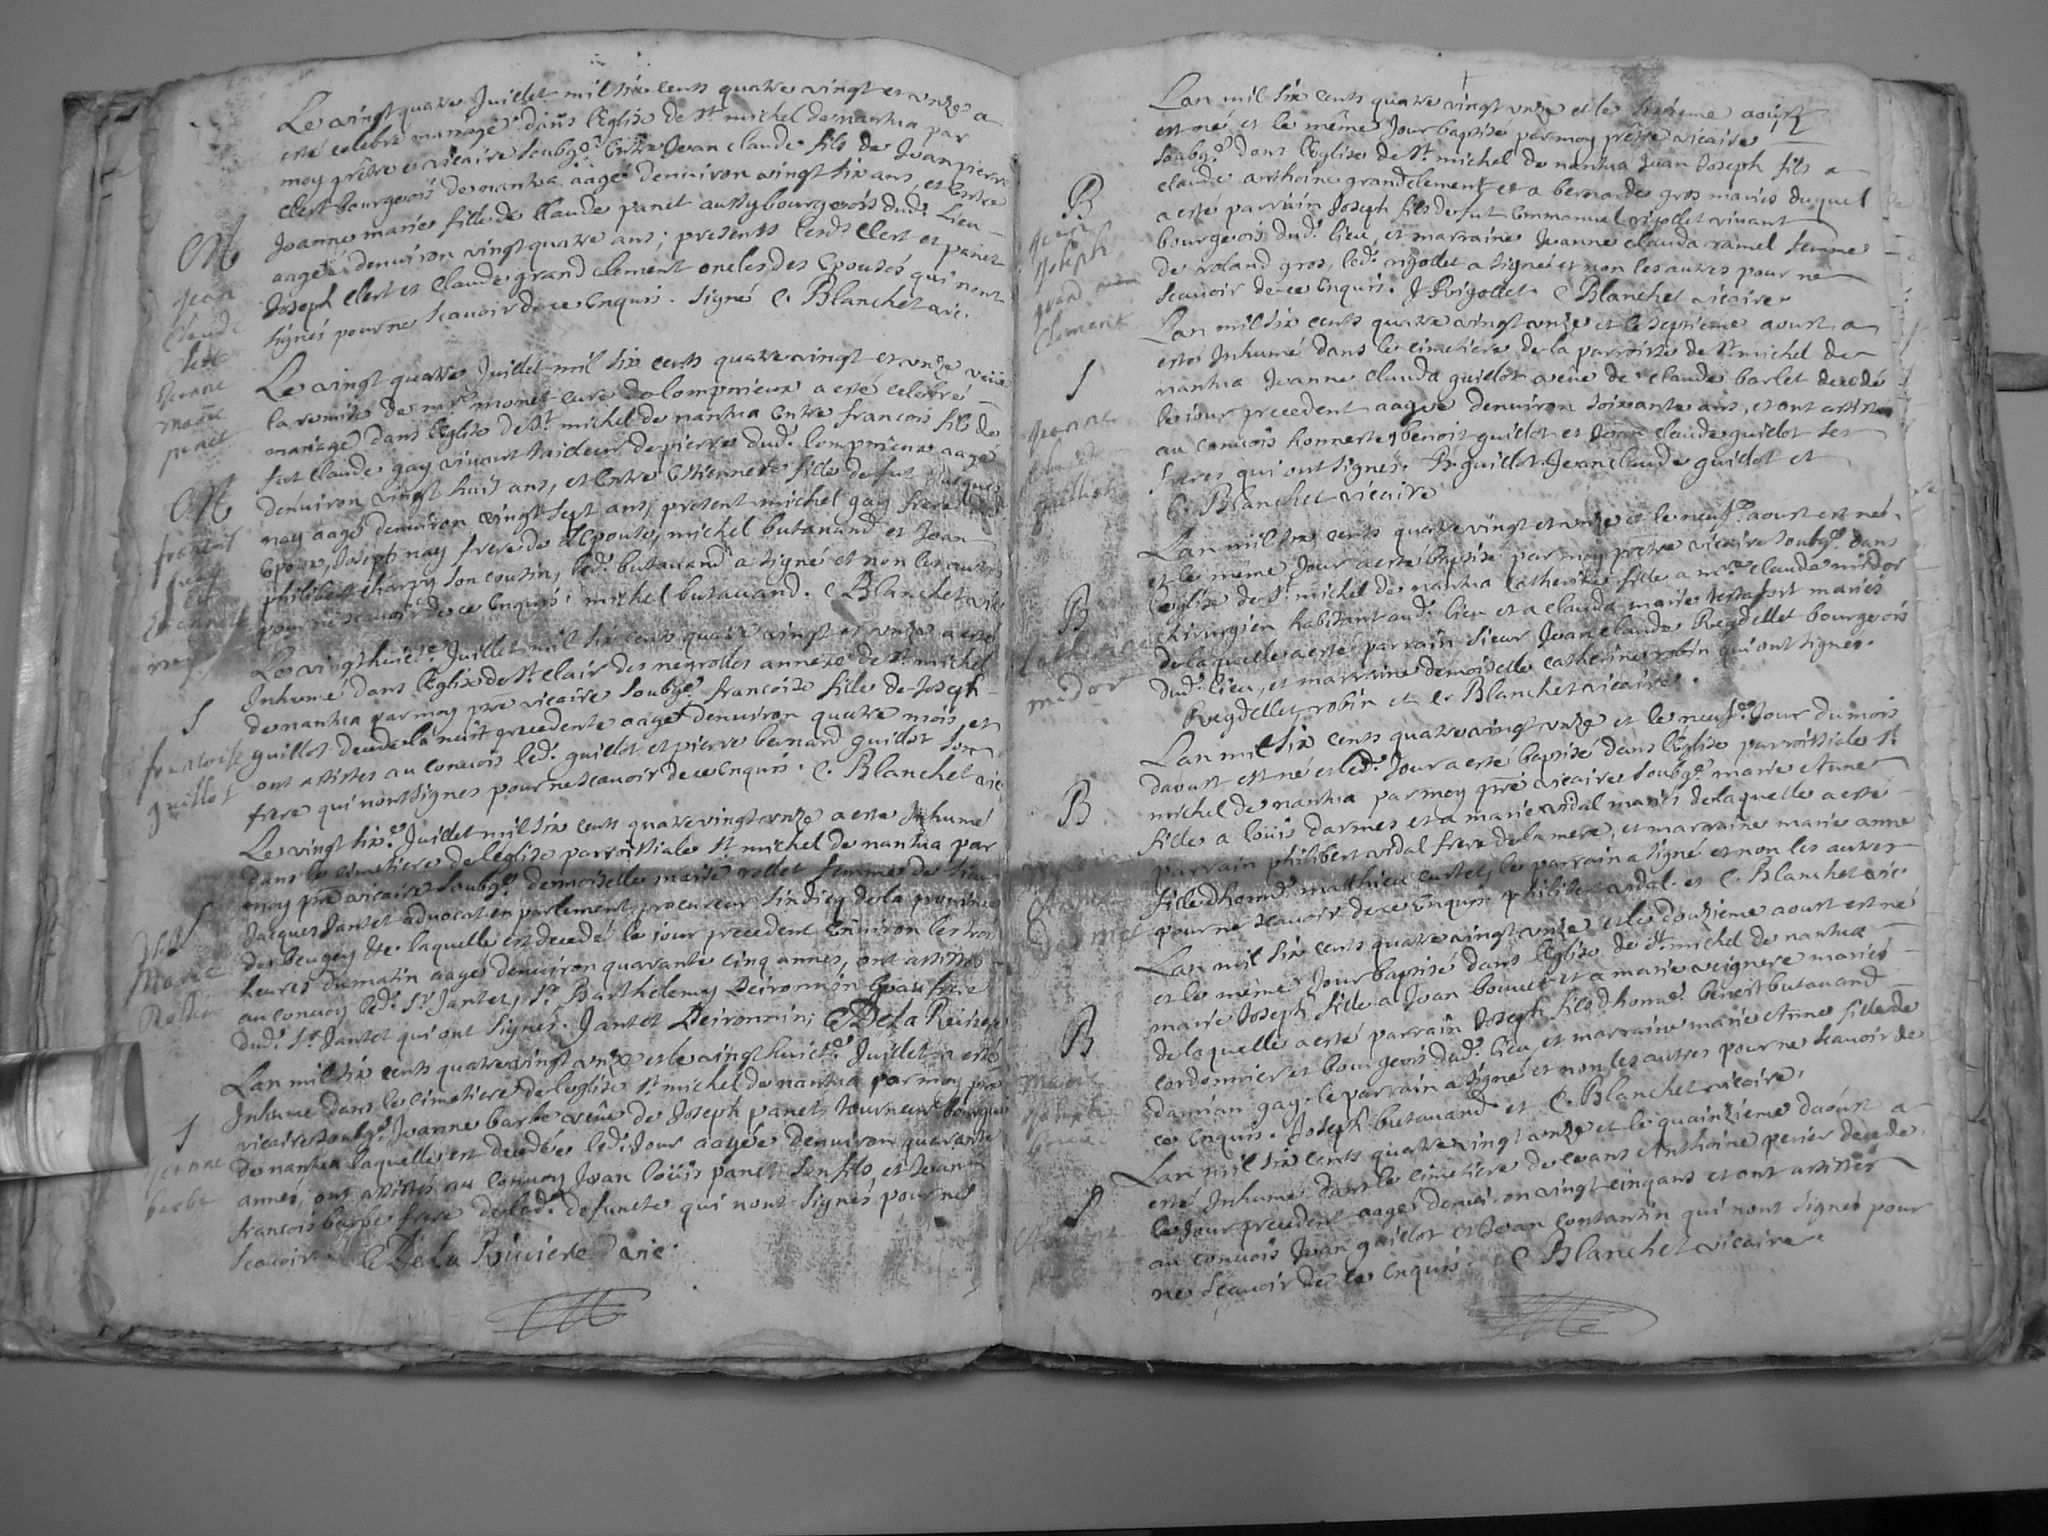 Le vingt quatre Juillet mil six cents quatre vingt et unze a
esté celebré mariage dans l'Eglise de St michel de nantua par
moy prêtre et vicaire soubzné Entre Jean claude fils de Jean pierre
Clert bourgeois de nantua aagé denuiron vingt six ans, et Entre
Jeanne marie fille de Claude panet aussy bourgeois dud. Lieu
aagée denuiron vingt quatre ans; presents lesd. Clert et panet
Joseph Clert et Claude grand clement oncles des Epousés qui n'ont
signés pour ne scauoir de ce Enquis. signé C. Blanchet vic.
M
Jean
Claude
Jeanne
marie
panet
Le vingt quatre Juillet mil six cents quatre vingt et unze veüe
la remise de mre monet curé de lompnieux a esté celebré
mariage dans l'Eglise de St michel de nantua Entre francois fils de
fut Claude gay viuant tailleur de pierre dud. lompnieux aagé
denuiron vingt huit ans, et Entre Estiennette fille de fut Jacques
nay aagé denuiron vingt sept ans, present michel gay frere
Epoux, Joseph nay frere de Epouse, michel butauand et Jean
philibert charpy son cousin, led. butauand a signé et non les autres
pour ne scauoir de ce Enquis. michel butauand. C Blanchet vic
M
francois
gay
et
Estiennette
nay
Le vingt huict.e Juillet mil six cents quatre vingt et unze a esté
Inhumé dans l'Eglise de St clair des negrolles annexe de St michel
de nantua par moy pre vicaire soubzné francoise fille de Joseph
guillot decedé la nuit precedente aagé denuiron quatre mois, et
ont assistes au conuois led. guillot et pierre bernard guillot son
frere qui n'ont signes pour ne scauoir de ce Enquis. C. Blanchet vic
S
francoise
guillot
Le vingt six.e Juillet mil six cents quatre vingt unze a esté Inhumé
dans le cimetiere de l'eglise parroissiale St michel de nantua par
moy pre vicaire soubzné demoiselle marie rollet femme de sieur
Jacques Jantet aduocat en parlement, procureur sindicq de la prouince
de beugey &c. laquelle est decedé le jour precedent Enuiron les trois
heures du matin aagé denuiron quarante cinq années, ont assistes
au conuoy led. Sr Jantet, Sr Barthelemy Deironnin beau frere
dud. Sr Jantet qui ont signés. Jantet Deironnin; C De La Riuiere
S
Marie
Rollet
Lan mil six cents quatre vingt unze et le vingt huict.e Juillet a esté
Inhumé dans le cimetiere de l'eglise St michel de nantua par moy pre
vicaire soubzné Jeanne barbe veüue de Joseph panet, tourneur bourgeois
de nantua laquelle est decedée led. Jour aagée denuiron quarante
années, ont assistes au conuoy Jean loüis panet son fils et Jean
francois barbe frere de lad. defuncte qui n'ont signés pour ne
scauoir. C De La Riuiere vic.
S
Jeanne
barbe
Lan mil six cents quatre vingt unze et le sixieme aoust
est né et le même Jour baptisé par moy prêtre vicaire
soubzné dans l'Eglise de St michel de nantua Jean Joseph fils a
claude anthoine grandclement et a bernarde gros mariés duquel
a esté parrain Joseph fils de fut Emmanuel rigollet viuant
bourgeois dud. lieu, et marraine Jeanne clauda ramel femme
de roland gros, led. rigollet a signé et non les autres pour ne
scauoir de ce Enquis. J Rigollet. C Blanchet vicaire.
B
Jean
Joseph
grand
Clement
Lan mil six cents quatre vingt unze et le septieme aoust a
esté Inhumé dans le cimetiere de la parroisse de St michel de
nantua Jeanne clauda guillot veüe de claude barlet decedé
le iour precedent aagée denuiron soixante ans, et ont assistés
au conuois honnestes benoit guillot et Jean claude guillot ses
freres qui ont signes. B. guillot. Jean claude guillot et
C. Blanchet vicaire
S
Jeanne
clauda
guilliot
Lan mil six cents quatre vingt et unze et le neuf.e aoust est né
et le même Jour a esté baptisé par moy prêtre vicaire soubzné dans
l'eglise de St michel de nantua Catherine fille a mre Claude midor
chirurgien habitant aud. lieu et a clauda marie testafort mariés
de laquelle a esté parrain sieur Jean claude Reydellet bourgeois
dud. lieu, et marraine demoiselle catherine robin qui ont signes.
Reydellet, robin et C. Blanchet vicaire.
B
Catherine
midor
Lan mil six cents quatre vingt unze et le neuf.e Jour du mois
d'aoust est né et led. Jour a esté baptisé dans l'Eglise parroissiale St
michel de nantua par moy pré vicaire soubzné marie Anne
fille a loüis darmes et a marie vidal mariés de laquelle a esté
parrain philibert vidal frere de la mere, et marraine marie anne
fille d'honn. matthieu curtet, le parrain a signé et non les autres
pour ne scauoir de ce Enquis. philibert vidal. et C. Blanchet vic.
B
Lan mil six cents quatre vingt unze et le douzieme aoust est né
et le même Jour baptisé dans l'Eglise de St michel de nantua
marie Joseph fille a Jean bouuet et a marie meigniere mariés
de laquelle a esté parrain Joseph fils d'honn. benoit butauand
cordonnier et bourgeois dud. lieu, et marraine marie Anne fille de
damian gay. le parrain a signé et non les autres pour ne scauoir de
ce Enquis. Joseph butauand et C. Blanchet vicaire.
B
Lan mil six cents quatre vingt unze et le quinzieme d'aoust a
esté Inhumé dans le cimetiere de ceans Anthoine perier decedé
le Jour precedent aagé denuiron vingt cinq ans et ont assistés
au conuois Jean guillot et Jean constantin qui n'ont signés pour
ne scauoir de ce Enquis. C Blanchet vicaire.
S